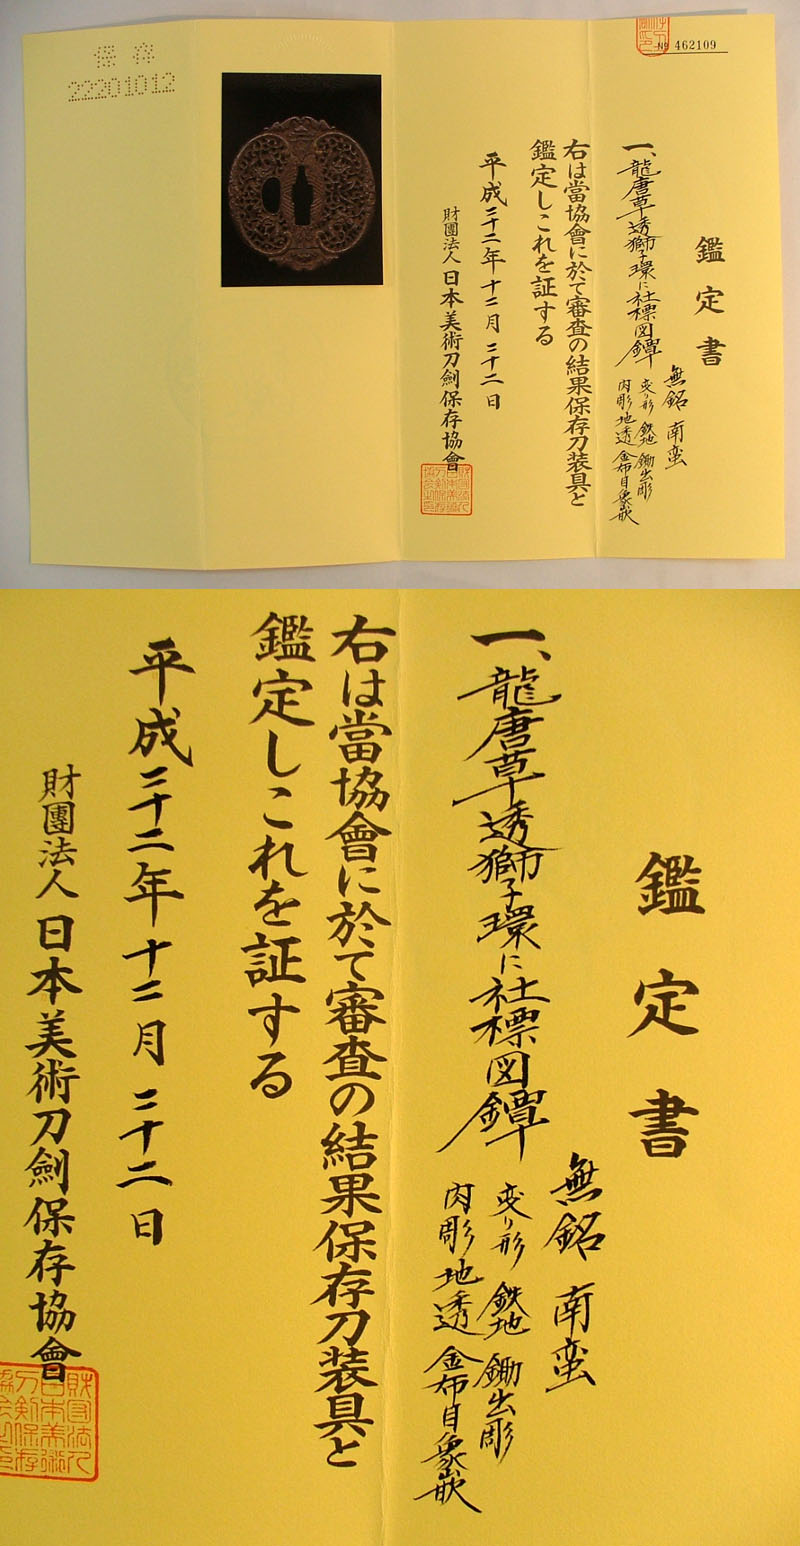 № 462109
鑑定書
一、龍唐草透獅子環に社標図鐔
無銘 南蛮
変り形 鉄地 鋤出彫
肉彫地透 金布目象嵌
右は當協會に於て審査の結果保存刀装具と
鑑定しこれを証する
平成二十二年十二月二十二日
財團法人 日本美術刀劍保存協會
保存
22201012
鑑定書
一、龍唐草透獅子環に社標図鐔
無銘 南蛮
変り形 鉄地 鋤出彫
肉彫地透 金布目象嵌
右は當協會に於て審査の結果保存刀装具と
鑑定しこれを証する
平成二十二年十二月二十二日
財團法人 日本美術刀劍保存協會